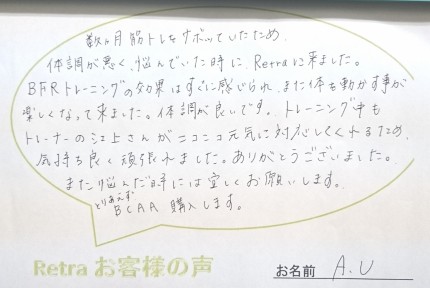 数ヶ月筋トレをサボっていたため、
体調が悪く、悩んでいた時に、Retraに来ました。
BFRトレーニングの効果はすぐに感じられ、また体も動かす事が
楽しくなって来ました。体調が良いです。トレーニング中も
トレーナーの江上さんがニコニコ元気に対応してくれるため
気持ち良く頑張れました。ありがとうございました。
また悩んだ時には宜しくお願いします。
とりあえず
BCAA 購入します。
Retra お客様の声
お名前 A.U